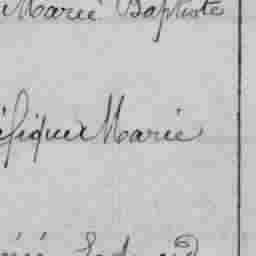 Marie Baptiste
ifique Marie